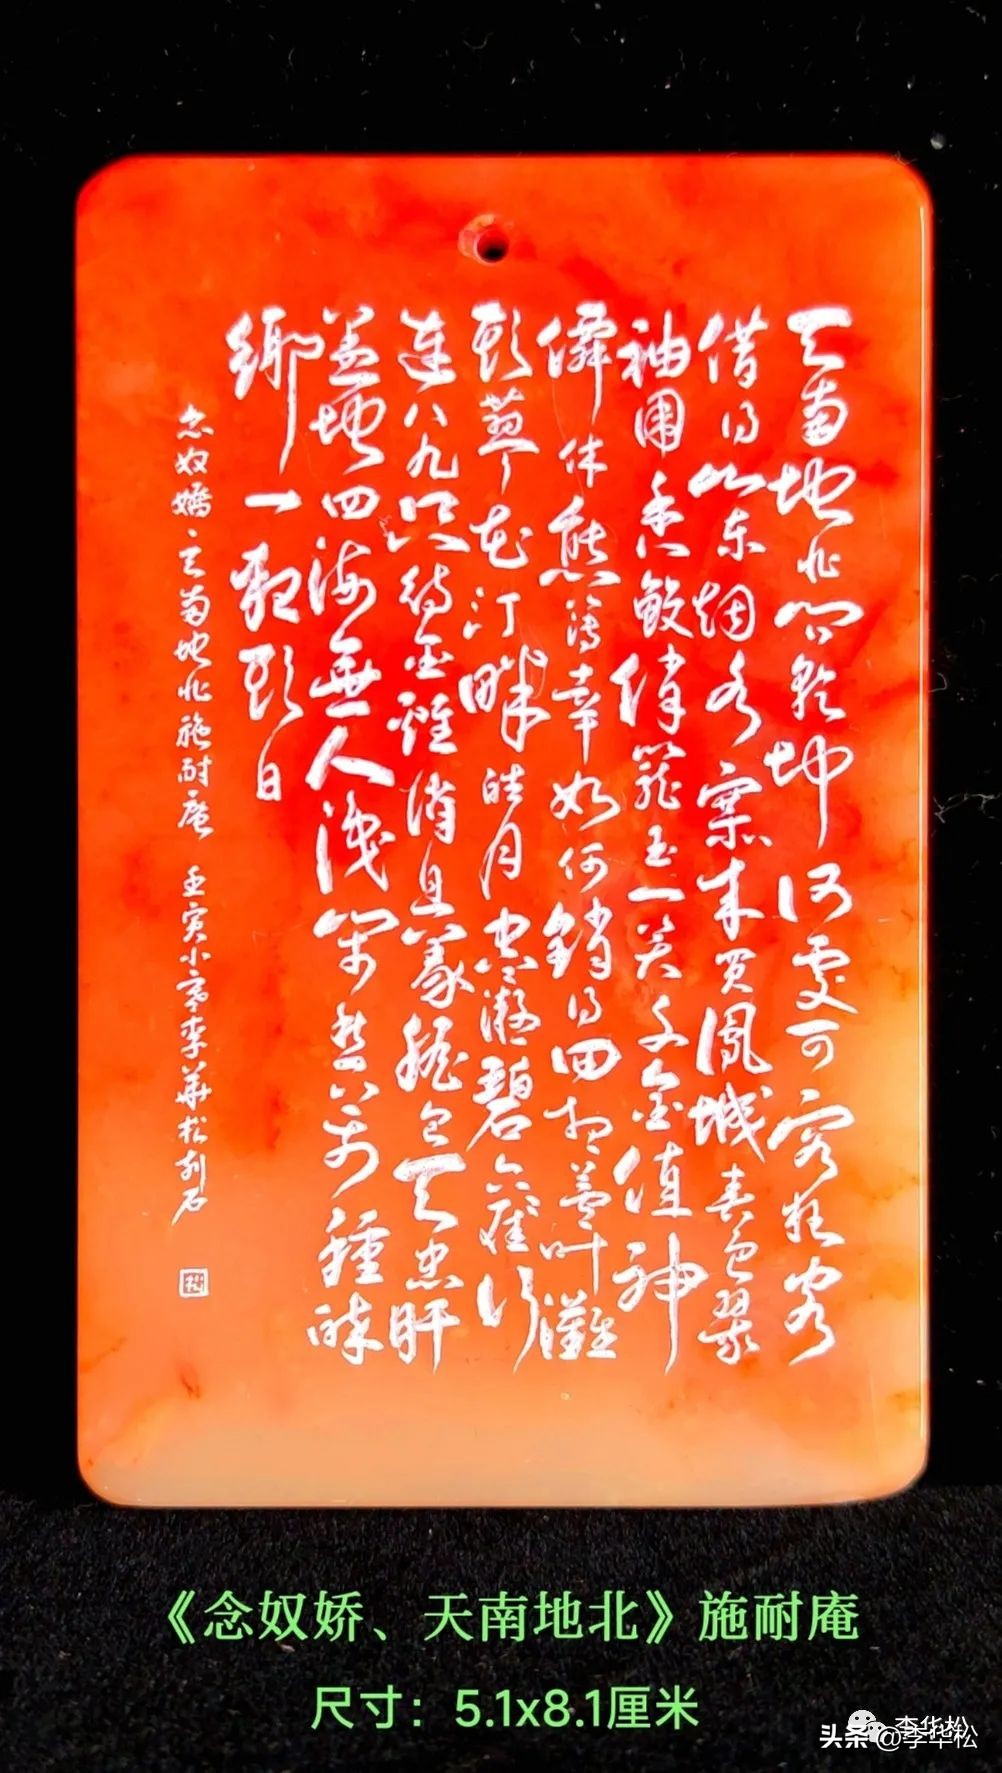 天南地北问乾坤何處可容狂客
借得山东烟水寨来买鳳城春色翠
袖围香鲛绡笼玉一笑千金值神
僊体態薄幸如何銷得回想蘆叶灘
頭蓼花汀畔皓月空凝碧六雁行
連八九只待金雞消息義膽包天忠肝
蓋地四海無人識閒愁萬種醉
鄉一夜頭白
念奴嬌、天南地北施耐庵 壬寅小李華松刻石
松
《念奴娇、天南地北》施耐庵
尺寸：5.1x8.1厘米
李华松
头条@李华松